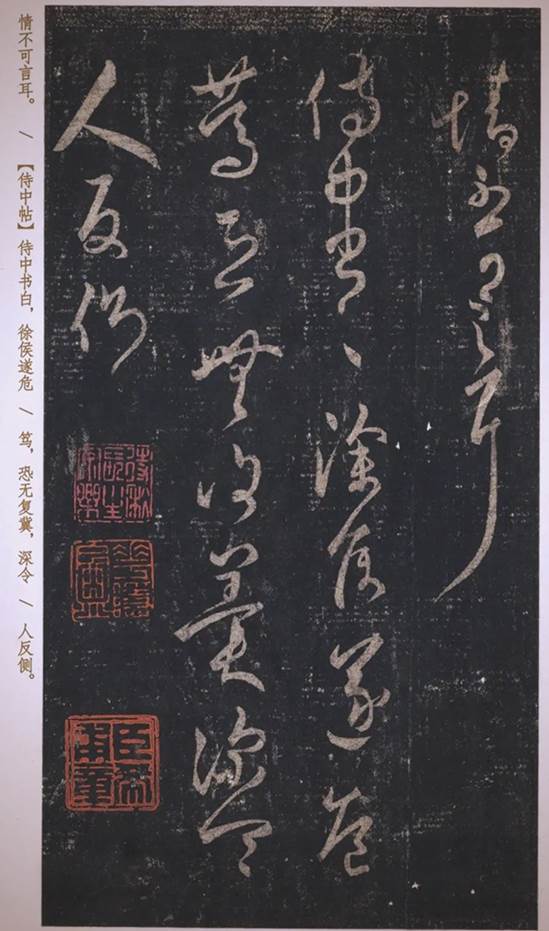 情不可言耳
侍中書白徐侯遂危
篤恐無復冀深令
人反側
情不可言耳。 / 【侍中帖】侍中书白，徐侯遂危 / 笃，恐无复冀，深令 / 人反侧。